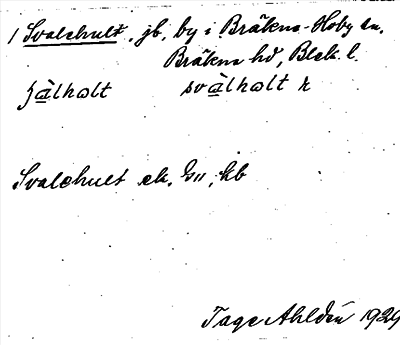 1 Svalehult, jb, by i Bräkne-Hoby sn,
Bräkne hd, Blek. l.
svàlhəlt r
Svalehult ek. kb
Tage Ahldén 1929